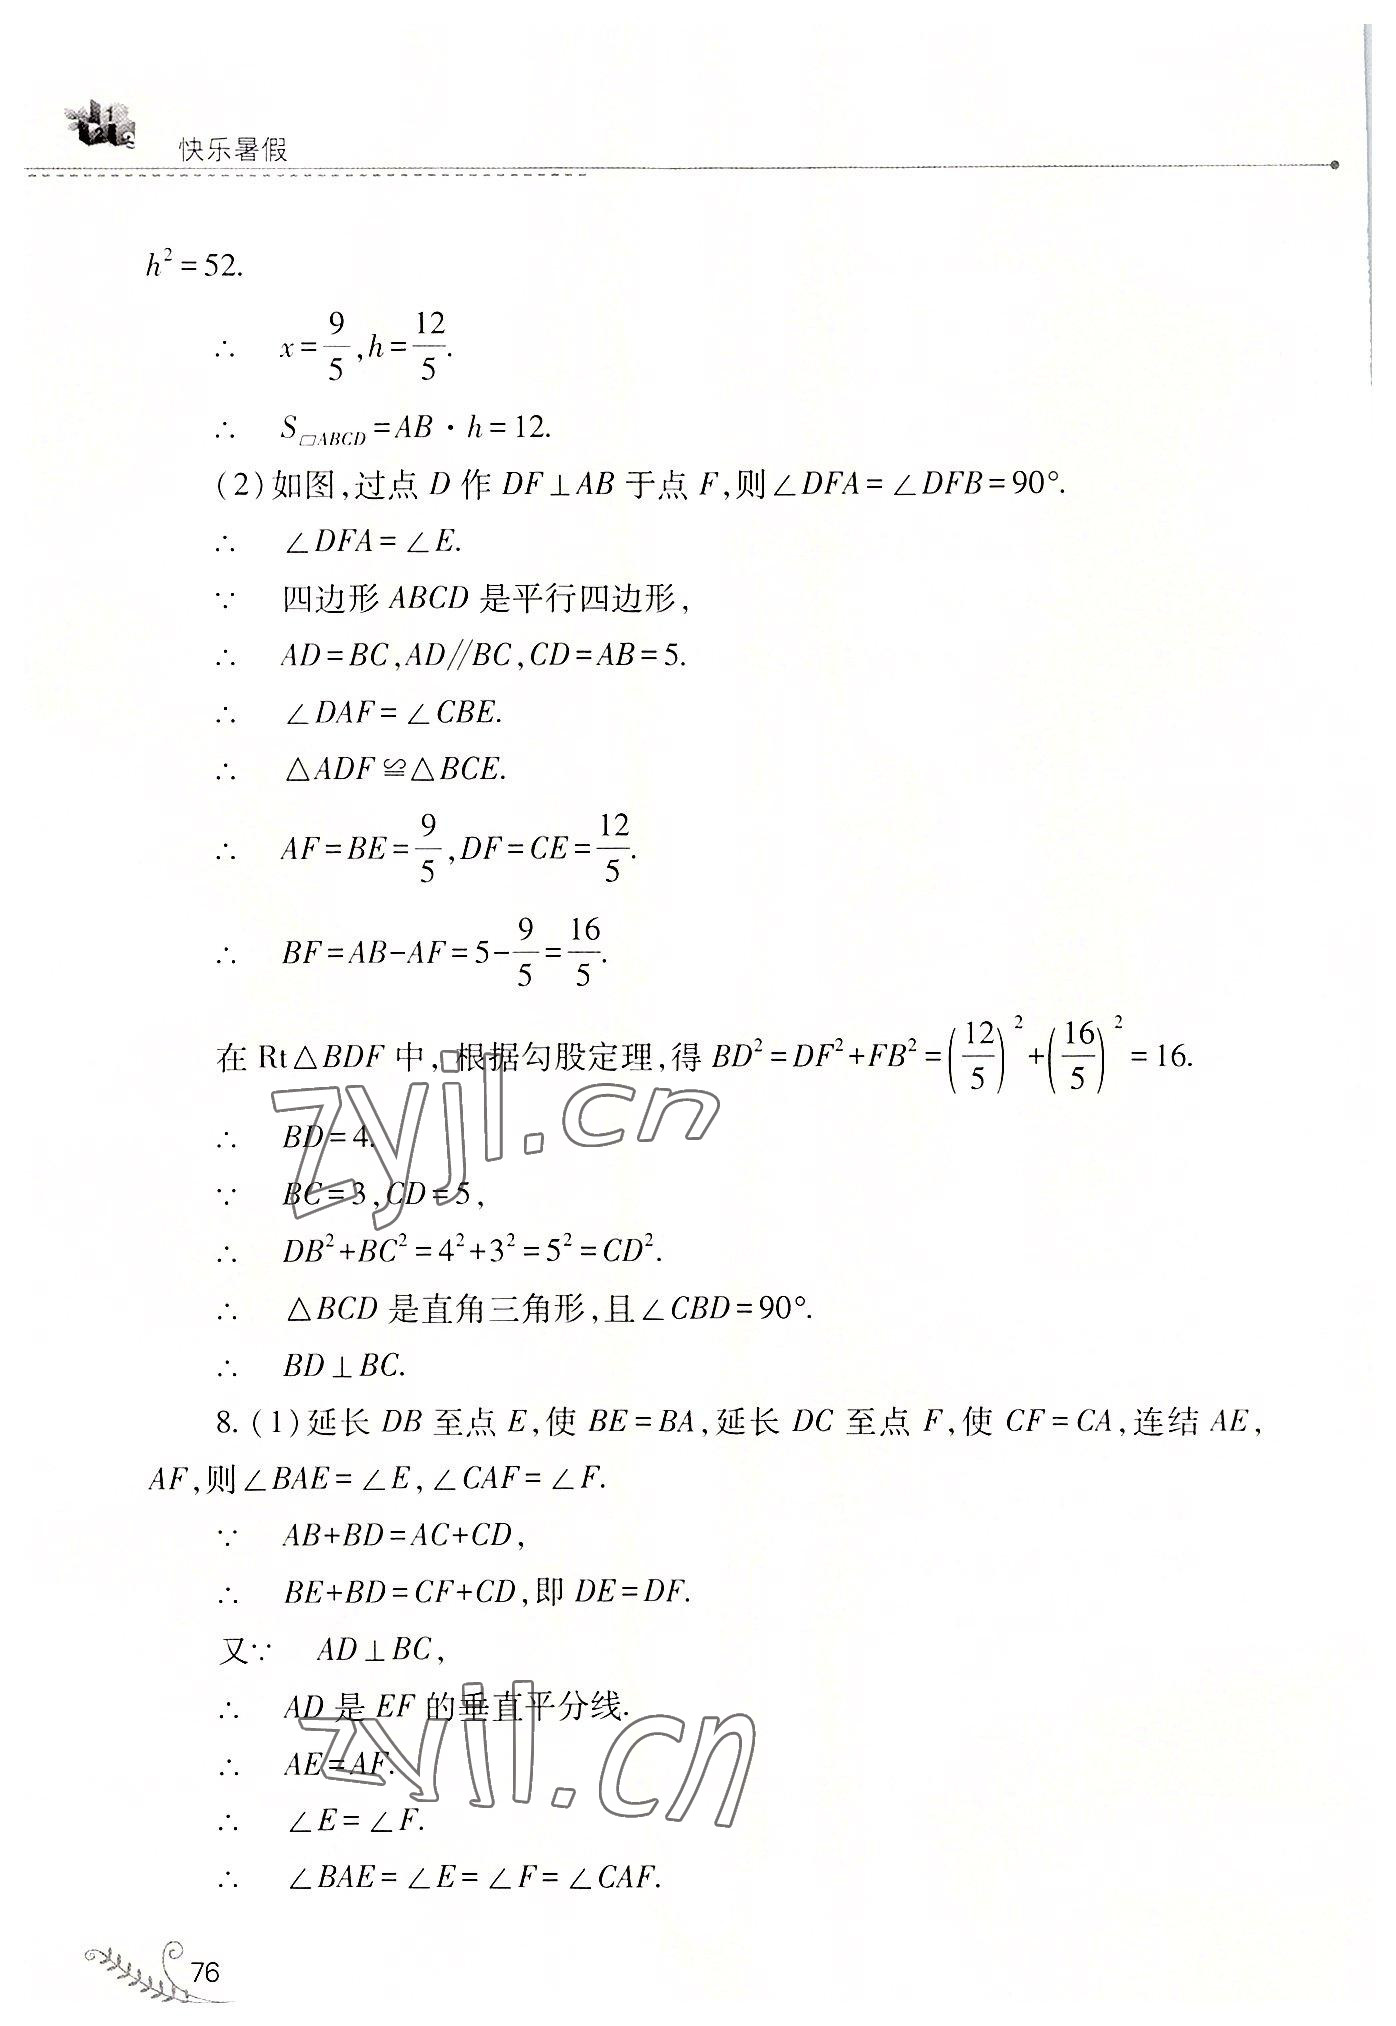 1
2
3
快乐暑假
h²=52.
∴ x=9/5,h=12/5.
∴ S▱ABCD=AB·h=12.
(2)如图,过点 D 作 DF⊥AB 于点 F,则∠DFA=∠DFB=90°.
∴ ∠DFA=∠E.
∵ 四边形 ABCD 是平行四边形,
∴ AD=BC,AD∥BC,CD=AB=5.
∴ ∠DAF=∠CBE.
∴ △ADF≌△BCE.
∴ AF=BE=9/5,DF=CE=12/5.
∴ BF=AB-AF=5-9/5=16/5.
在 Rt△BDF 中,根据勾股定理,得 BD²=DF²+FB²=(12/5)²+(16/5)²=16.
∴ BD=4.
∵ BC=3,CD=5,
∴ DB²+BC²=4²+3²=5²=CD².
∴ △BCD 是直角三角形,且∠CBD=90°.
∴ BD⊥BC.
8.(1)延长 DB 至点 E,使 BE=BA,延长 DC 至点 F,使 CF=CA,连结 AE,
AF,则∠BAE=∠E,∠CAF=∠F.
∵ AB+BD=AC+CD,
∴ BE+BD=CF+CD,即 DE=DF.
又∵ AD⊥BC,
∴ AD 是 EF 的垂直平分线.
∴ AE=AF.
∴ ∠E=∠F.
∴ ∠BAE=∠E=∠F=∠CAF.
76
zyjl.cn
zyjl.cn